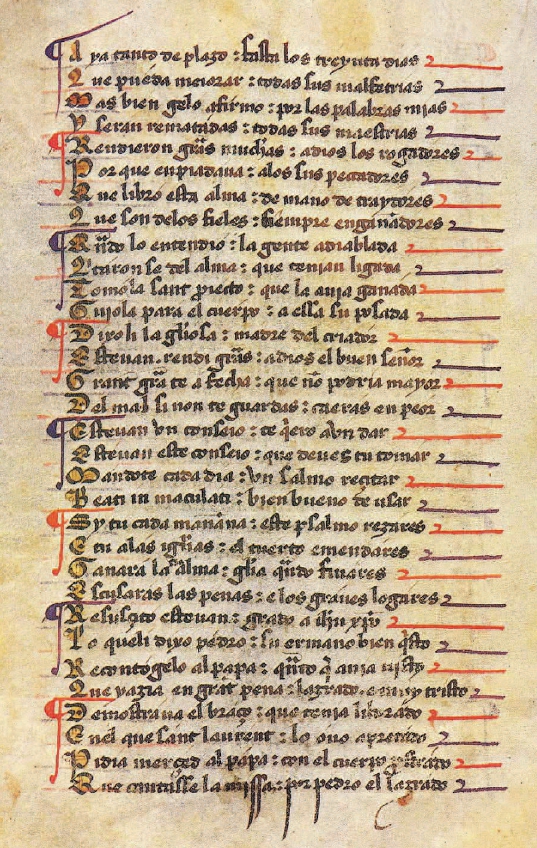 Aya tanto de plazo : fasta los treynta dias
Que pueda meiorar : todas sus malfetrias
Mas bien gelo afirmo : por las palabras mias
Y seran rematadas : todas sus maestrias
Rendieron grãs muchas : adios los rogadores
Por que enpiadaua : alos sus pecadores
Que libro esta alma : de mano de traydores
Que son delos fieles : siempre engañadores
Qñdo lo entendio : la gente adiablada
Quitaron se del alma : que tenian ligada
Tomola sant proiecto : que la auia ganada
Guiola para el cuerpo : a ella su posada
Dixoli la gl̃iosa : madre del criador
Esteuan rendi grãs : adios el buen señor
Grant grã te a fecha : que nõ podria mayor
Del mal si non te guardas : caeras en peor
Esteuan vn conseio : te q̃ero avn dar
Esteuan este conseio : que deues tu tomar
Mandote cada dia : vn salmo recitar
Beati in maculati : bien bueno de vsar
Sy tu cada mañana : este psalmo rezares
E tu alas igl̃ias : el tuerto emendares
Ganara la alma : gl̃ia qñdo finares
Escusaras las penas : e los graues logares
Resusçito esteuan : grado a ihũ xp̃o
Lo queli dixo pedro : su ermano bien q̃sto
Recontogelo al papa : qñto q̃ auia uisto
Que yazia en grãt pena : lazrado e muy tristo
Demostraua el braço : que tenia liurado
Enel que sant laurent : lo ouo apretado
Pidia merçed al papa : con el cuerpo p̃strado
Que cantasse la missa : por pedro el lazrado